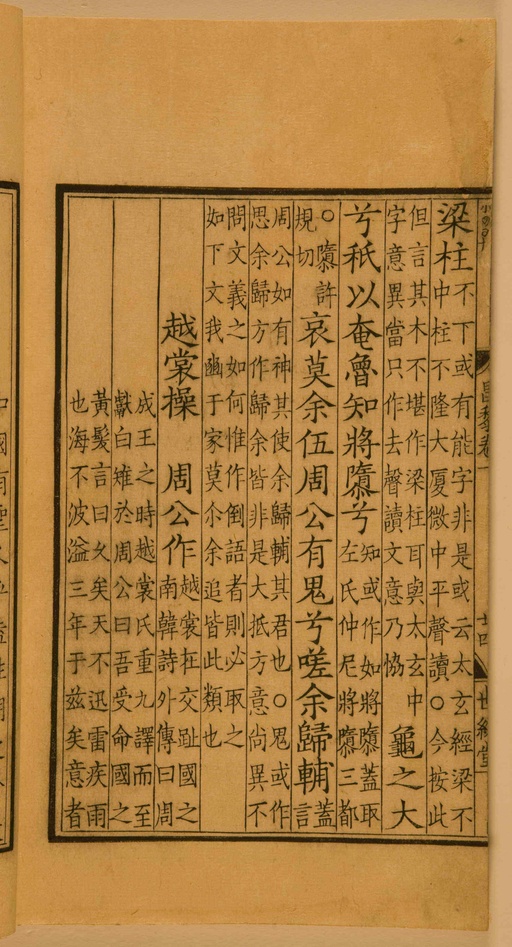 梁柱不下或有能字非是或云太玄經梁不
中柱不隆大厦微中平聲讀○今按此
但言其木不堪作梁柱耳與太玄中
字意異當只作去聲讀文意乃協龜之大
兮秖以奄魯知將隳兮知或作如將隳蓋取
左氏仲尼將隳三都
○隳許
規切哀莫余伍周公有鬼兮嗟余歸輔蓋
言
周公如有神其使余歸輔其君也○鬼或作
思余歸方作歸余皆非是大抵方意尚異不
問文義之如何惟作倒語者則必取之
如下文我豳于家莫尒余追皆此類也
越裳操 周公作越裳在交趾國之
南韓詩外傳曰周
成王之時越裳氏重九譯而至
獻白雉於周公曰吾受命國之
黃髮言曰久矣天不迅雷疾雨
也海不波溢三年于茲矣意者
昌黎卷一
十四
世綵堂